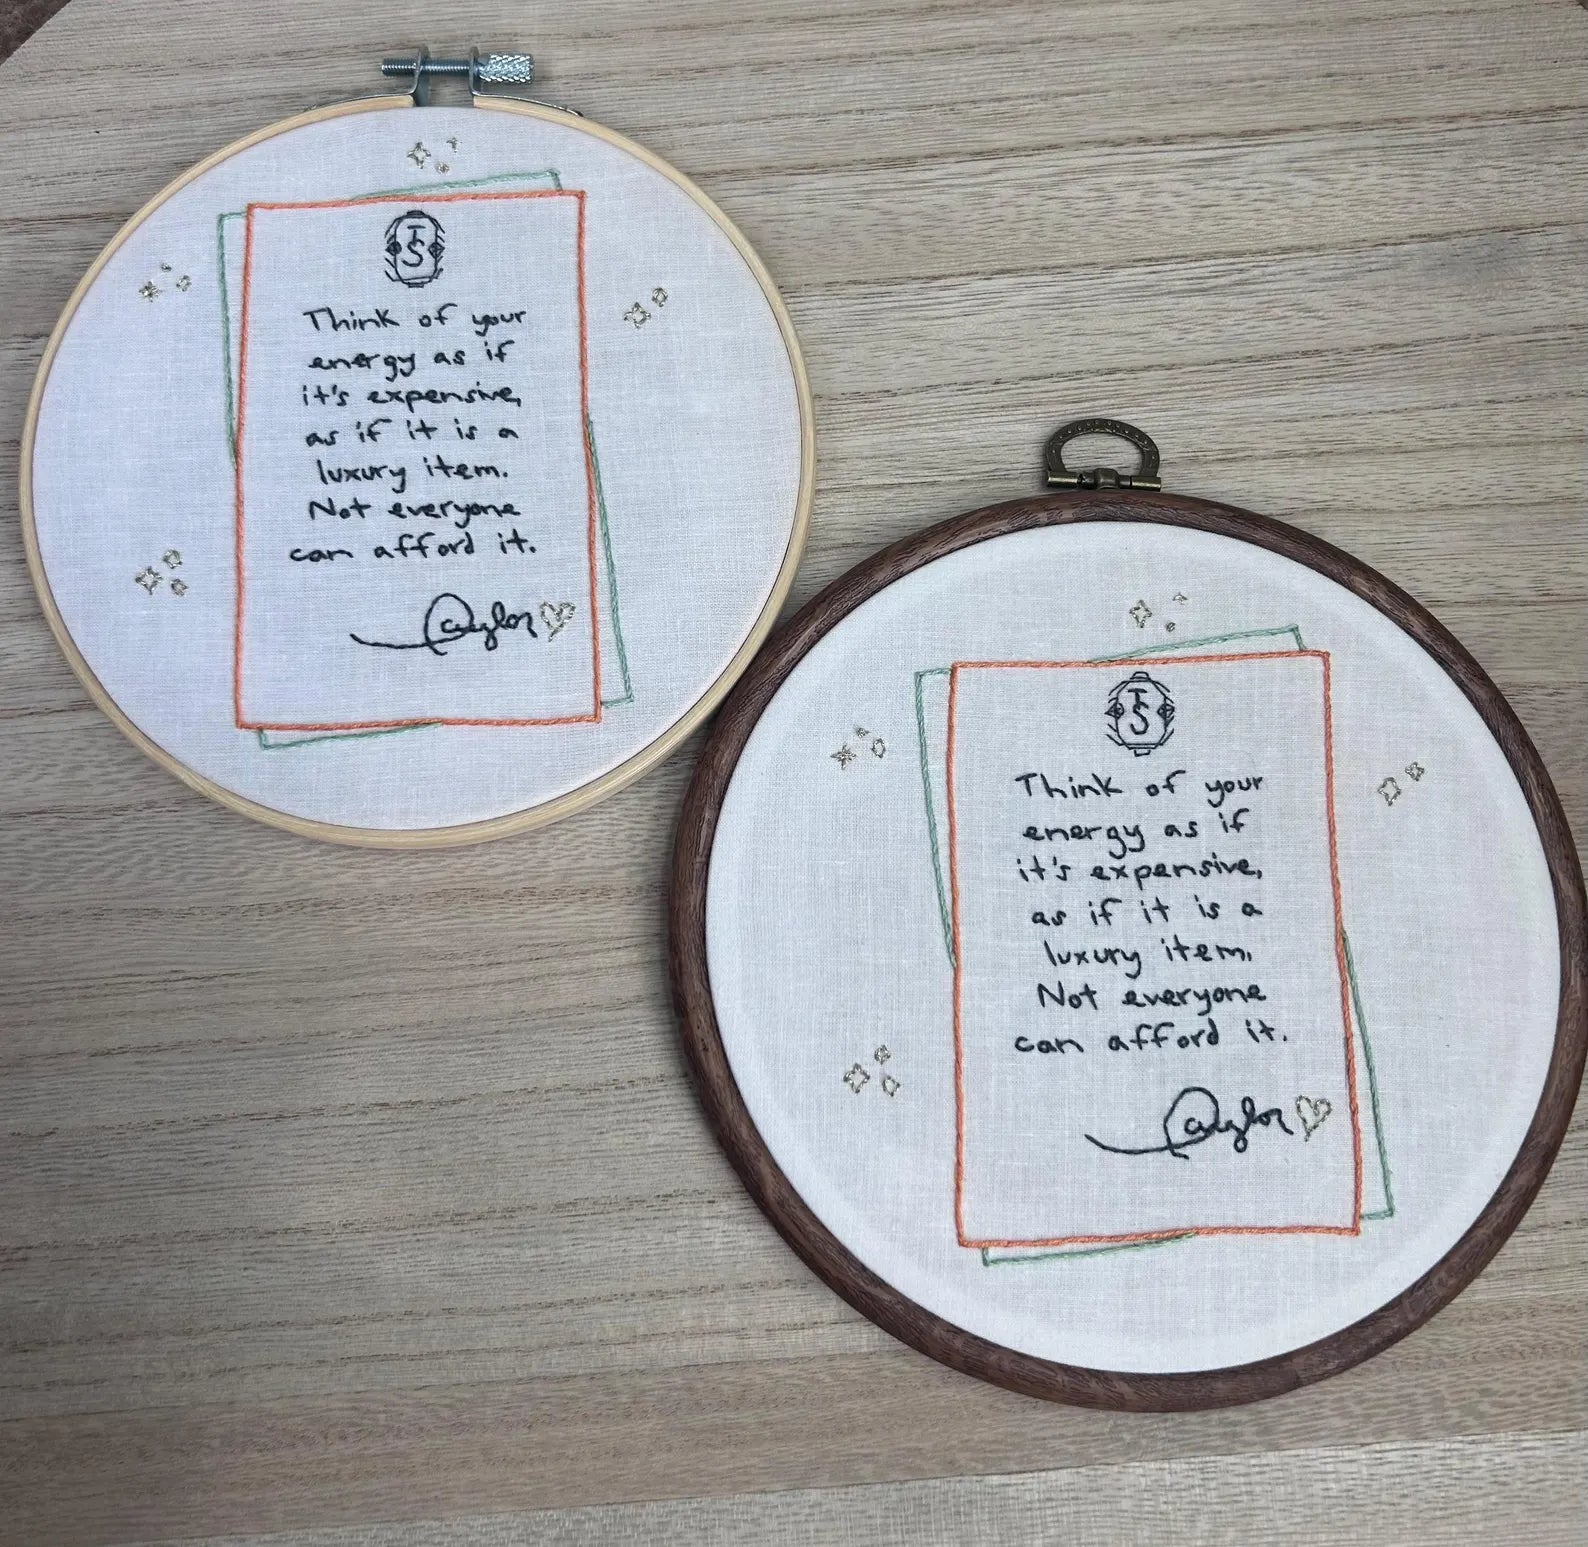 TS
Think of your
energy as if
it's expensive,
as if it is a
luxury item.
Not everyone
can afford it.
Taylor
TS
Think of your
energy as if
it's expensive,
as if it is a
luxury item.
Not everyone
can afford it.
Taylor